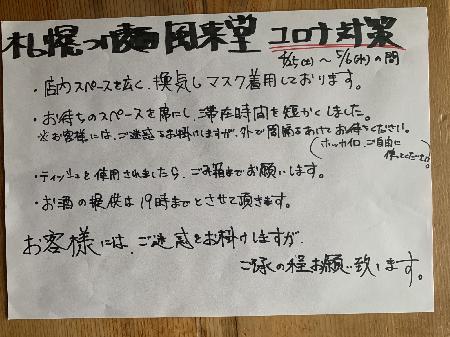 札幌つけ麺 風来堂 コロナ対策
4/25(土)～5/6(水)の間
・店内スペースを広く、換気しマスク着用しております。
・お待ちのスペースを席にし、滞在時間を短かくしました。
※お客様には、ご迷惑をお掛けしますが、外で間隔をあけてお待ちください。
(ホッカイロ、ご自由に
使ってください!!)
・ティッシュを使用されましたら、ごみ箱までお願いします。
・お酒の提供は19時までとさせて頂きます。
お客様には、ご迷惑をお掛けしますが、
ご了承の程お願い致します。